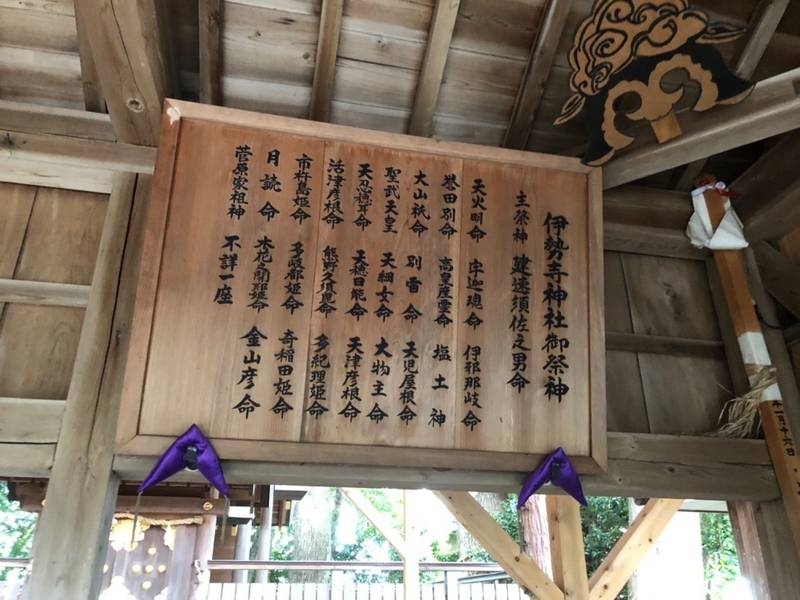 伊勢寺神社御祭神
主祭神 建速須佐之男命
天火明命 宇迦魂命 伊邪那岐命
誉田別命 高皇産霊命 塩土神
大山祇命 別雷命 天児屋根命
聖武天皇 天細女命 大物主命
天忍穂耳命 天穂日能命 天津彦根命
活津彦根命 熊野久須毘命 多紀理姫命
市杵島姫命 多岐都姫命 奇稲田姫命
月読命 木花之開耶姫命 金山彦命
菅原家祖神 不詳一座
年一月十六日